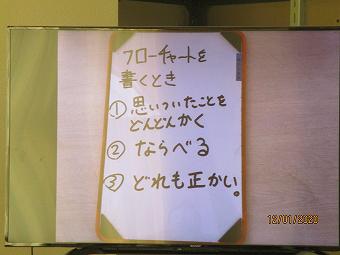 フローチャートを
書くとき
① 思いついたことを
どんどんかく
② ならべる
③ どれも正かい。
12/01/2020